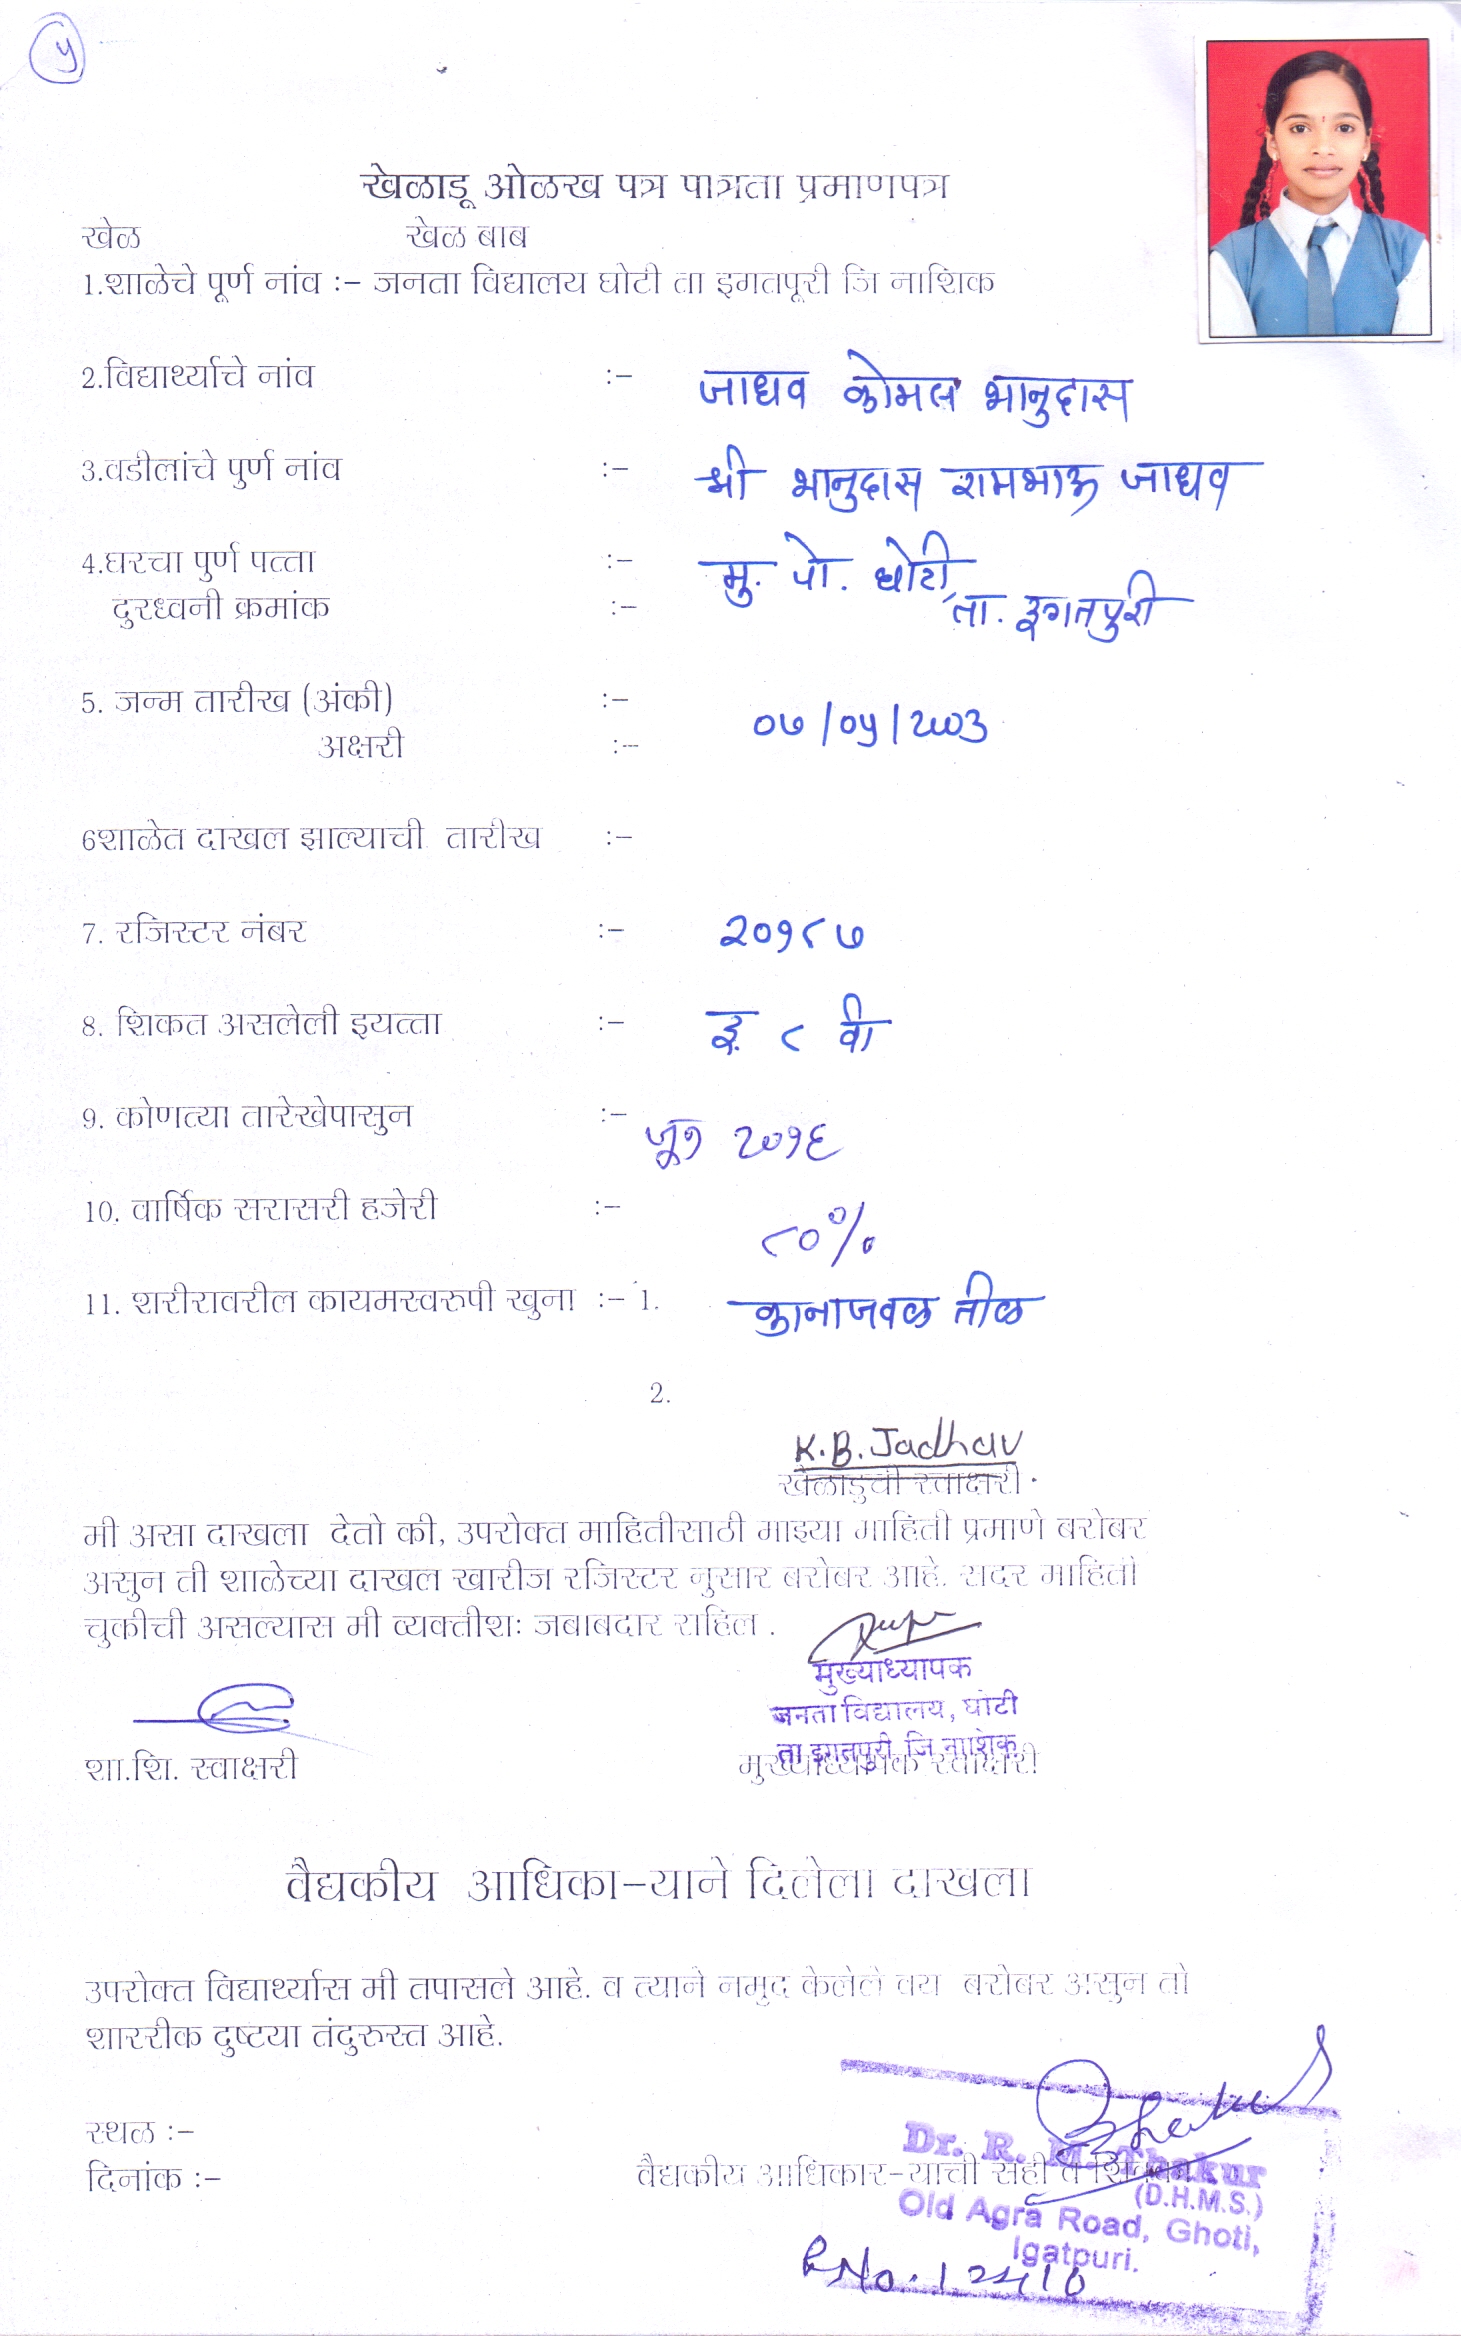 ५
खेळाडू ओळख पत्र पात्रता प्रमाणपत्र
खेळ खेळ बाब
1.शाळेचे पूर्ण नांव :– जनता विद्यालय घोटी ता इगतपूरी जि नाशिक
2.विद्यार्थ्याचे नांव :– जाधव कोमल भानुदास
3.वडीलांचे पुर्ण नांव :– श्री भानुदास रामभाऊ जाधव
4.घरचा पुर्ण पत्ता :– मु. पो. घोटी,
दुरध्वनी क्रमांक :– ता. इगतपुरी
5. जन्म तारीख (अंकी) :– ०७/०५/२००३
अक्षरी :–
6शाळेत दाखल झाल्याची तारीख :–
7. रजिस्टर नंबर :– २०१८७
8. शिकत असलेली इयत्ता :– इ. ८ वी
9. कोणत्या तारेखेपासुन :– जून २०१६
10. वार्षिक सरासरी हजेरी :– ८०%
11. शरीरावरील कायमस्वरुपी खुना :– 1. कानाजवळ तीळ
2.
K.B.Jadhav
खेळाडुची स्वाक्षरी.
मी असा दाखला देतो की, उपरोक्त माहितीसाठी माझ्या माहिती प्रमाणे बरोबर
असुन ती शाळेच्या दाखल खारीज रजिस्टर नुसार बरोबर आहे. सदर माहिती
चुकीची असल्यास मी व्यक्तीशः जबाबदार राहिल .
मुख्याध्यापक
जनता विद्यालय, घोटी
ता इगतपुरी, जि नाशिक
शा.शि. स्वाक्षरी मुख्याध्यापक स्वाक्षरी
वैद्यकीय आधिका–याने दिलेला दाखला
उपरोक्त विद्यार्थ्यास मी तपासले आहे. व त्याने नमुद केलेले वय बरोबर असुन तो
शाररीक दुष्टया तंदुरुस्त आहे.
स्थळ :–
दिनांक :– वैद्यकीय आधिकार–याची सही व शिक्का
Dr. R. M. Thakur
(D.H.M.S.)
Old Agra Road, Ghoti,
Igatpuri.